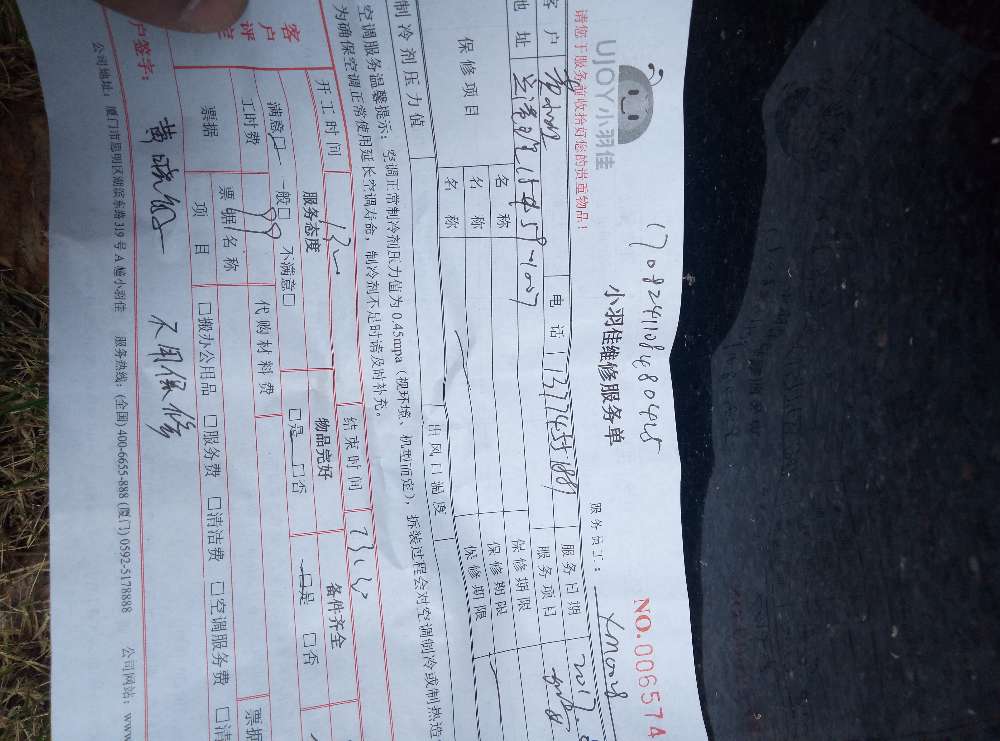 UJOY小羽佳
17082411084804045
小羽佳维修服务单
NO.0065574
请您于服务前收拾好您的贵重物品！
服务员工：XM0008
客户
电话
服务日期 2017
地址
服务项目
保修项目
名称
保修期限
名称
保修期限
名称
保修期限
制冷剂压力值
出风口温度
空调服务温馨提示：空调正常制冷剂压力值为0.45mpa（视环境、机型而定），拆装过程会对空调制冷或制热造
为确保空调正常使用延长空调寿命，制冷剂不足时请及时补充。
开工时间
结束时间
客户评定
服务态度
物品完好
备件齐全
满意□ 一般□ 不满意□
□是 □否
□是 □否
工时费 199
代购材料费
票据
票据名称
票据
项目
□搬办公用品 □服务费 □清洁费 □空调服务费 □清
户签字：
黄晓敏
不用保修
公司地址：厦门市思明区湖滨东路319号A幢小羽佳 服务热线：(全国) 400-6655-888 (厦门) 0592-5178888 公司网站：www